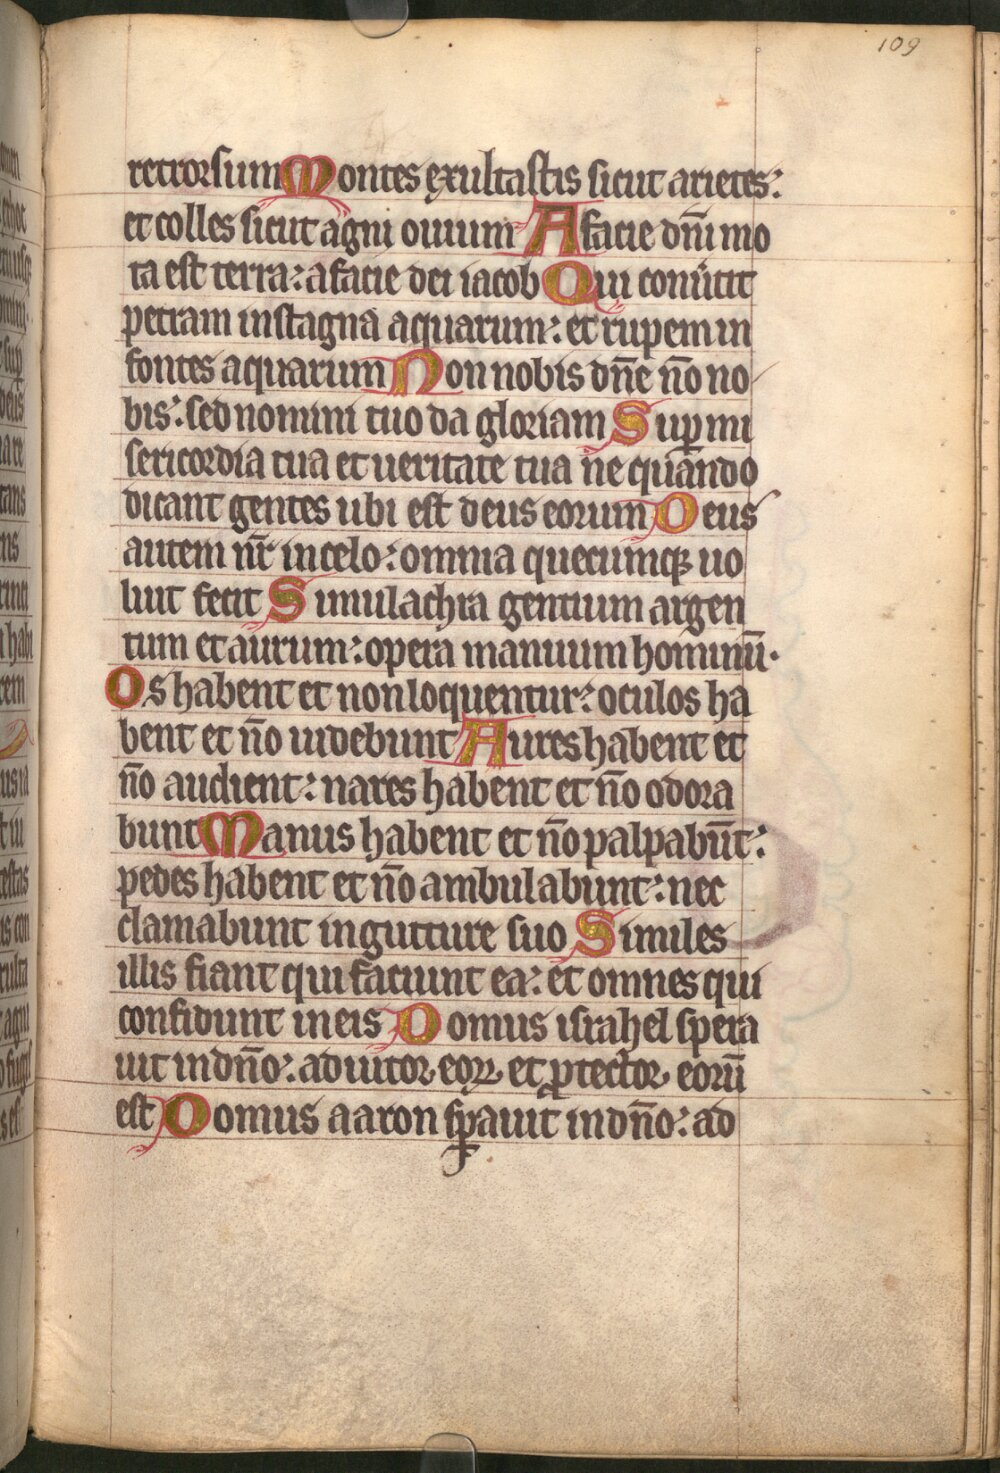 109
retrorsum Montes exultastis sicut arietes:
et colles sicut agni ouium A facie dn̄i mo
ta est terra: a facie dei iacob Qui conu̾tit
petram in stagna aquarum: et rupem in
fontes aquarum Non nobis dn̄e no̅ no
bis: sed nomini tuo da gloriam Suꝑ mi
sericordia tua et ueritate tua ne quando
dicant gentes ubi est deus eorum Deus
autem nr̄ in celo: omnia quecumqꝫ uo
luit fecit Simulachra gentium argen
tum et aurum: opera manuum hominū.
Os habent et non loquentur: oculos ha
bent et no̅ uidebunt Aures habent et
no̅ audient: nares habent et no̅ odora
bunt Manus habent et no̅ palpabūt:
pedes habent et no̅ ambulabunt: nec
clamabunt in gutture suo Similes
illis fiant qui faciunt ea: et omnes qui
confidunt in eis Domus israhel spera
uit in dn̄o: adiutor eoꝝ et ꝓtector eorū
est Domus aaron sꝑauit in dn̄o: ad